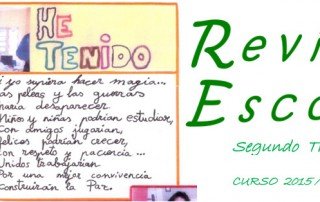 HE
TENIDO
i yo supiera hacer magia...
as peleas y las guerras
haría desaparecer.
Niños y niñas podrían estudiar,
Con amigos jugarían,
felices podrían crecer,
Con respeto y paciencia...
Unidos trabajarían
Por una mejor convivencia
construirán la Paz.
Revi
Esco
Segundo T
CURSO 2015/